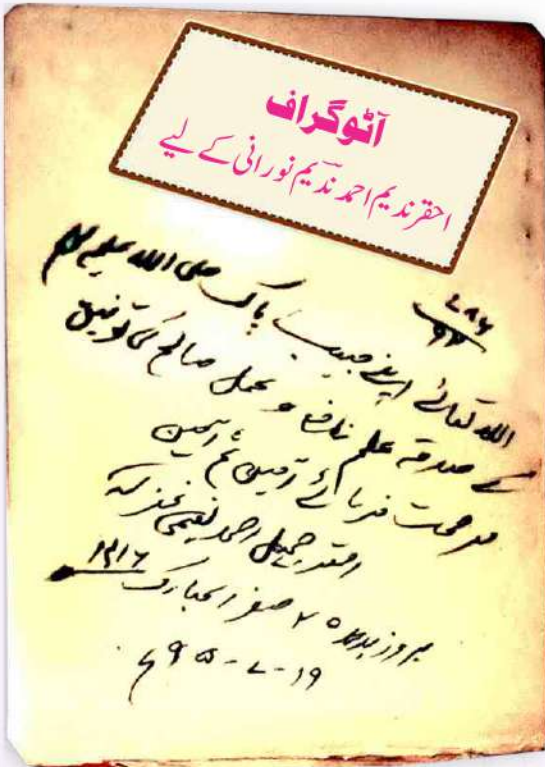 آٹوگراف
احقر ندیم احمد ندیمؔ نورانی کے لیے
۷۸۶
۹۲
اللہ تعالیٰ اپنے حبیب پاک صلی اللہ علیہ وسلم
کے صدقہ علم نافع و عمل صالح کی توفیق
مرحمت فرمائے آمین ثم آمین
احقر جمیل احمد نعیمی غفرلہ
بروز بدھ ۲۰ صفر المبارک ۱۴۱۶
۱۹-۷-۹۵ء